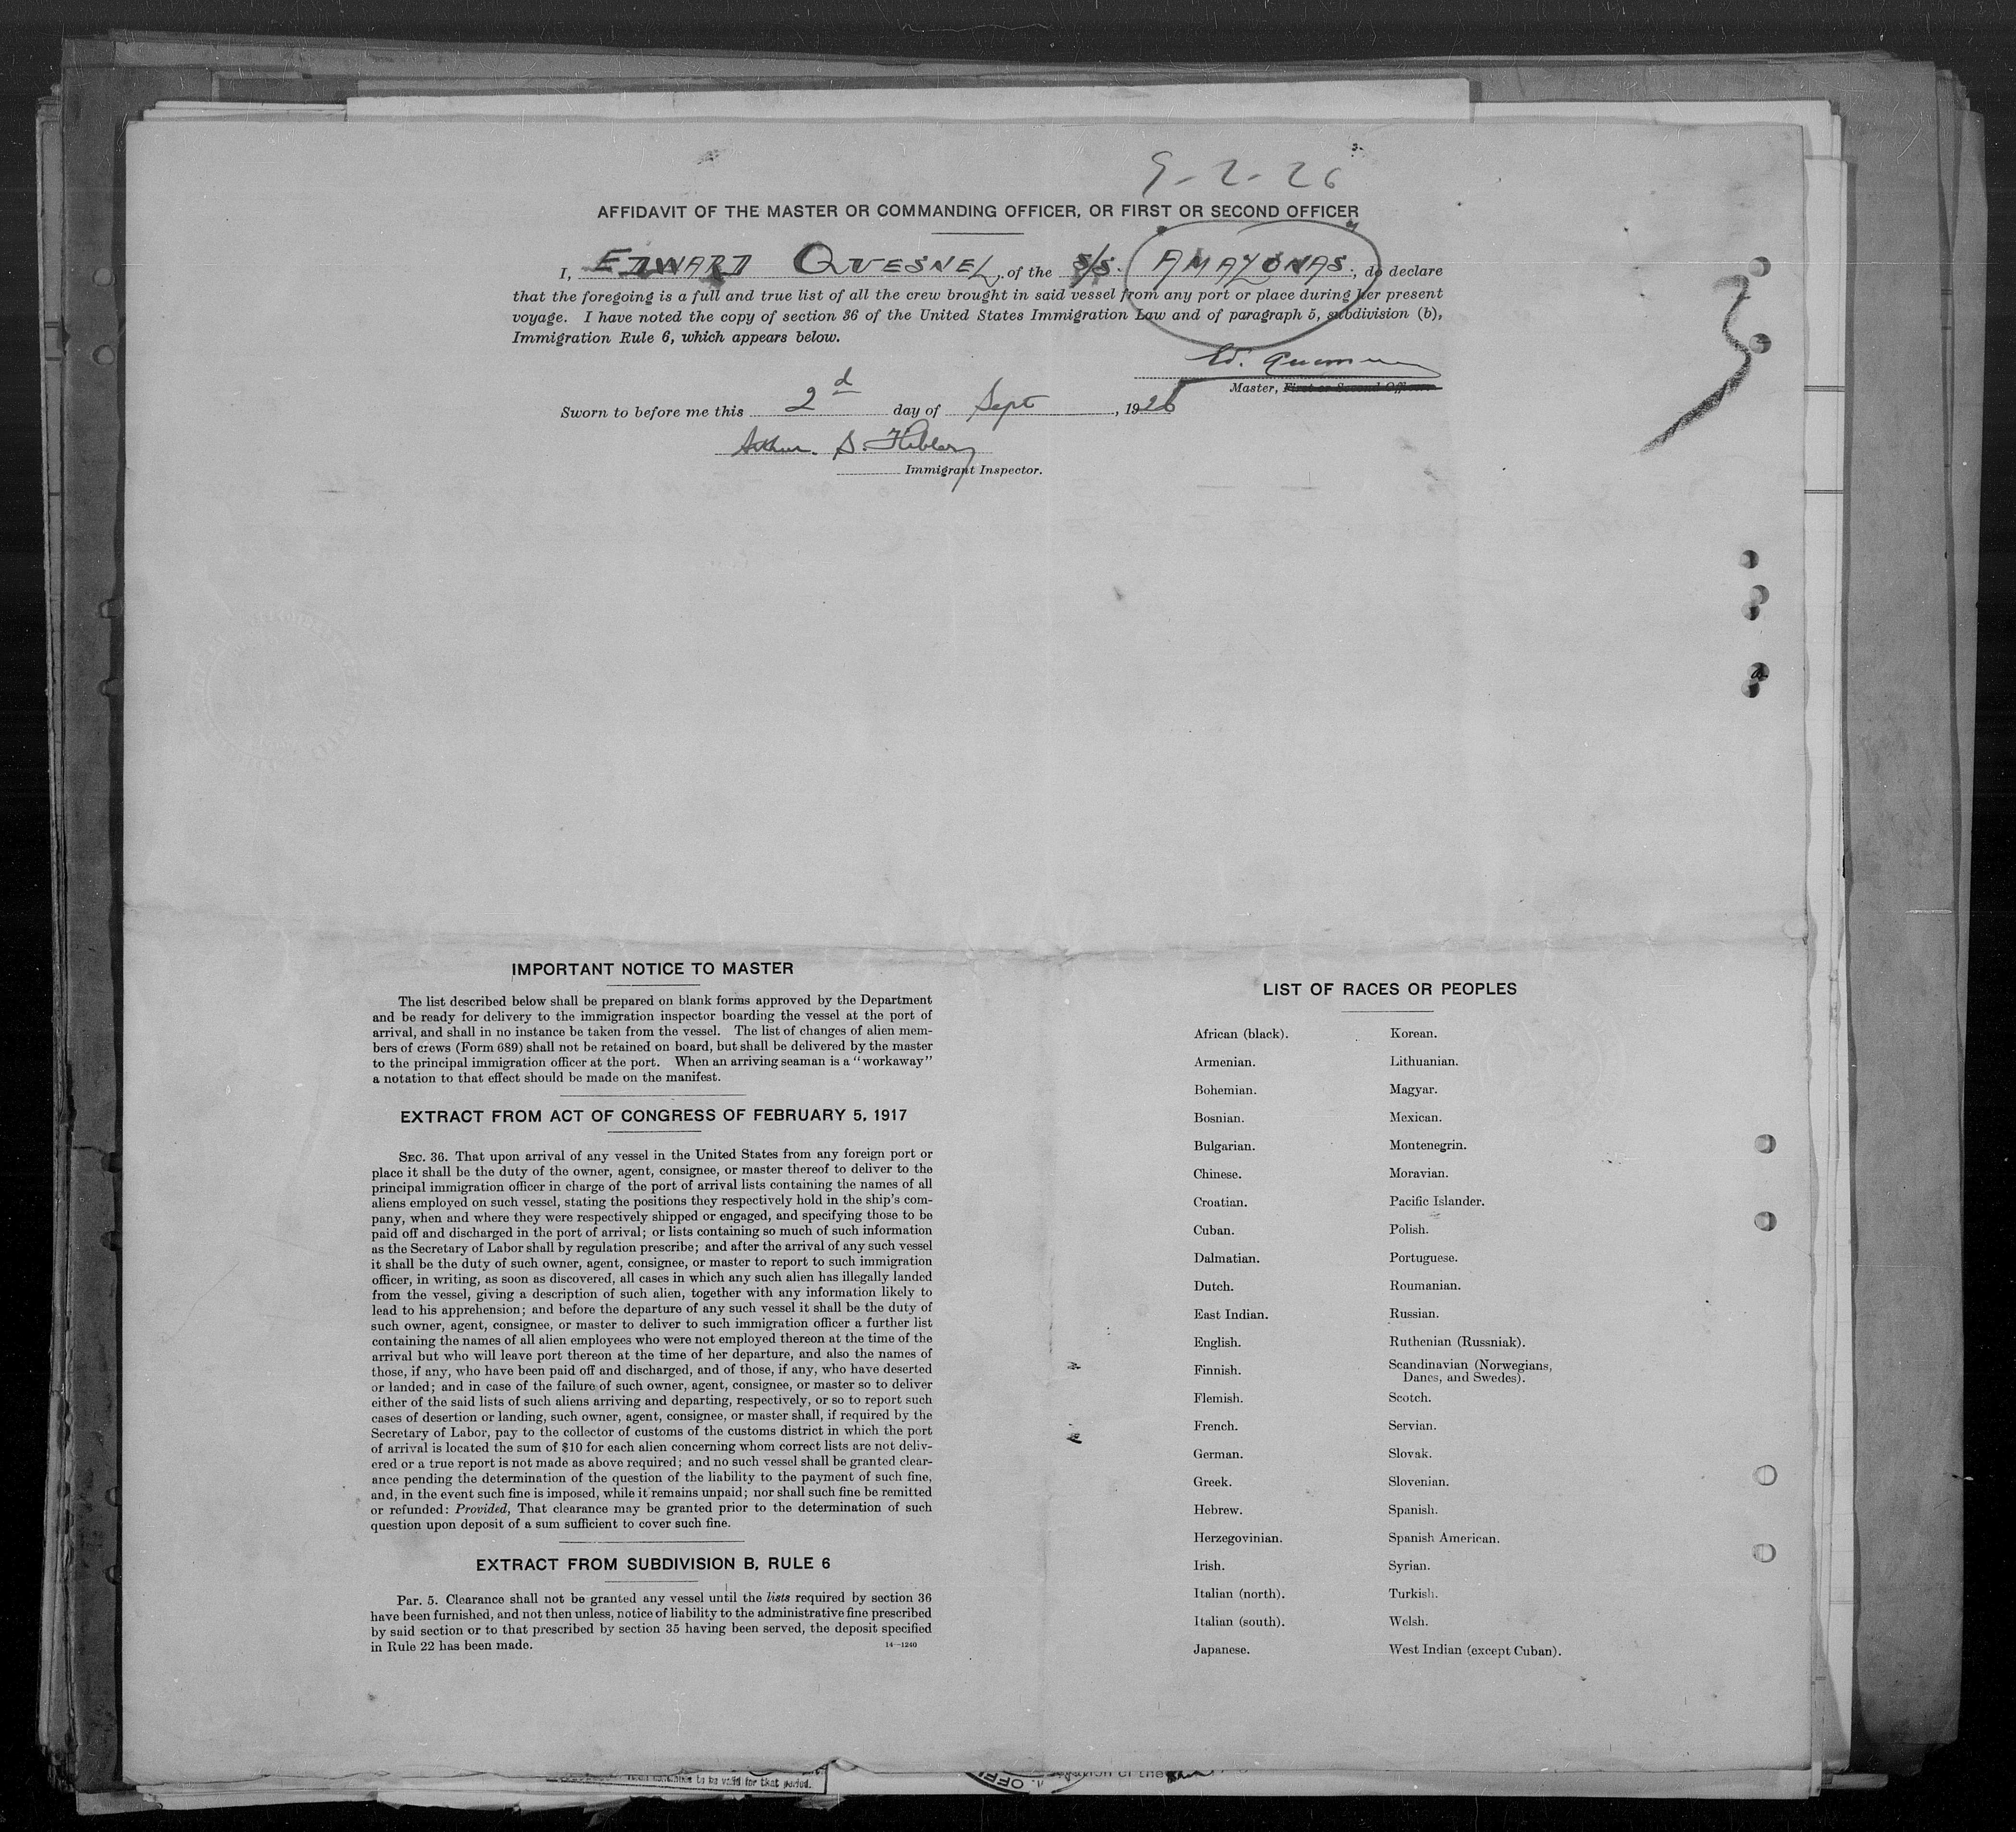 9-2-26
AFFIDAVIT OF THE MASTER OR COMMANDING OFFICER, OR FIRST OR SECOND OFFICER
I, EDWARD QUESNEL, of the S/S. AMAZONAS, do declare
that the foregoing is a full and true list of all the crew brought in said vessel from any port or place during her present
voyage. I have noted the copy of section 36 of the United States Immigration Law and of paragraph 5, subdivision (b),
Immigration Rule 6, which appears below.
Ed.
Master, First or Second Officer.
Sworn to before me this 2d day of Sept, 1926
Arthur S.
Immigrant Inspector.
IMPORTANT NOTICE TO MASTER
The list described below shall be prepared on blank forms approved by the Department
and be ready for delivery to the immigration inspector boarding the vessel at the port of
arrival, and shall in no instance be taken from the vessel. The list of changes of alien mem-
bers of crews (Form 689) shall not be retained on board, but shall be delivered by the master
to the principal immigration officer at the port. When an arriving seaman is a "workaway"
a notation to that effect should be made on the manifest.
EXTRACT FROM ACT OF CONGRESS OF FEBRUARY 5, 1917
SEC. 36. That upon arrival of any vessel in the United States from any foreign port or
place it shall be the duty of the owner, agent, consignee, or master thereof to deliver to the
principal immigration officer in charge of the port of arrival lists containing the names of all
aliens employed on such vessel, stating the positions they respectively hold in the ship's com-
pany, when and where they were respectively shipped or engaged, and specifying those to be
paid off and discharged in the port of arrival; or lists containing so much of such information
as the Secretary of Labor shall by regulation prescribe; and after the arrival of any such vessel
it shall be the duty of such owner, agent, consignee, or master to report to such immigration
officer, in writing, as soon as discovered, all cases in which any such alien has illegally landed
from the vessel, giving a description of such alien, together with any information likely to
lead to his apprehension; and before the departure of any such vessel it shall be the duty of
such owner, agent, consignee, or master to deliver to such immigration officer a further list
containing the names of all alien employees who were not employed thereon at the time of the
arrival but who will leave port thereon at the time of her departure, and also the names of
those, if any, who have been paid off and discharged, and of those, if any, who have deserted
or landed; and in case of the failure of such owner, agent, consignee, or master so to deliver
either of the said lists of such aliens arriving and departing, respectively, or so to report such
cases of desertion or landing, such owner, agent, consignee, or master shall, if required by the
Secretary of Labor, pay to the collector of customs of the customs district in which the port
of arrival is located the sum of $10 for each alien concerning whom correct lists are not deliv-
ered or a true report is not made as above required; and no such vessel shall be granted clear-
ance pending the determination of the question of the liability to the payment of such fine,
and, in the event such fine is imposed, while it remains unpaid; nor shall such fine be remitted
or refunded: Provided, That clearance may be granted prior to the determination of such
question upon deposit of a sum sufficient to cover such fine.
EXTRACT FROM SUBDIVISION B, RULE 6
Par. 5. Clearance shall not be granted any vessel until the lists required by section 36
have been furnished, and not then unless, notice of liability to the administrative fine prescribed
by said section or to that prescribed by section 35 having been served, the deposit specified
in Rule 22 has been made.
14—1240
LIST OF RACES OR PEOPLES
African (black).
Armenian.
Bohemian.
Bosnian.
Bulgarian.
Chinese.
Croatian.
Cuban.
Dalmatian.
Dutch.
East Indian.
English.
Finnish.
Flemish.
French.
German.
Greek.
Hebrew.
Herzegovinian.
Irish.
Italian (north).
Italian (south).
Japanese.
Korean.
Lithuanian.
Magyar.
Mexican.
Montenegrin.
Moravian.
Pacific Islander.
Polish.
Portuguese.
Roumanian.
Russian.
Ruthenian (Russniak).
Scandinavian (Norwegians,
Danes, and Swedes).
Scotch.
Servian.
Slovak.
Slovenian.
Spanish.
Spanish American.
Syrian.
Turkish.
Welsh.
West Indian (except Cuban).
to be valid for that period.